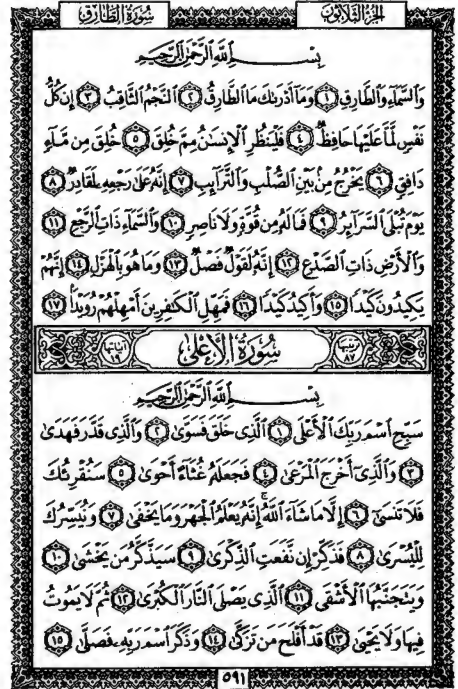 سُورَةُ الطَّارِقِ
الجُزْءُ الثَّلَاثُونَ
بِسْمِ ٱللَّهِ ٱلرَّحْمَٰنِ ٱلرَّحِيمِ
وَٱلسَّمَآءِ وَٱلطَّارِقِ ١ وَمَآ أَدْرَىٰكَ مَا ٱلطَّارِقُ ٢ ٱلنَّجْمُ ٱلثَّاقِبُ ٣ إِن كُلُّ
نَفْسٍ لَّمَّا عَلَيْهَا حَافِظٌ ٤ فَلْيَنظُرِ ٱلْإِنسَٰنُ مِمَّ خُلِقَ ٥ خُلِقَ مِن مَّآءٍ
دَافِقٍ ٦ يَخْرُجُ مِنۢ بَيْنِ ٱلصُّلْبِ وَٱلتَّرَآئِبِ ٧ إِنَّهُۥ عَلَىٰ رَجْعِهِۦ لَقَادِرٌ ٨
يَوْمَ تُبْلَى ٱلسَّرَآئِرُ ٩ فَمَا لَهُۥ مِن قُوَّةٍ وَلَا نَاصِرٍ ١٠ وَٱلسَّمَآءِ ذَاتِ ٱلرَّجْعِ ١١
وَٱلْأَرْضِ ذَاتِ ٱلصَّدْعِ ١٢ إِنَّهُۥ لَقَوْلٌ فَصْلٌ ١٣ وَمَا هُوَ بِٱلْهَزْلِ ١٤ إِنَّهُمْ
يَكِيدُونَ كَيْدًا ١٥ وَأَكِيدُ كَيْدًا ١٦ فَمَهِّلِ ٱلْكَٰفِرِينَ أَمْهِلْهُمْ رُوَيْدًۢا ١٧
ترتيبها ٨٧ سُورَةُ الأَعْلَىٰ آياتها ١٩
بِسْمِ ٱللَّهِ ٱلرَّحْمَٰنِ ٱلرَّحِيمِ
سَبِّحِ ٱسْمَ رَبِّكَ ٱلْأَعْلَى ١ ٱلَّذِى خَلَقَ فَسَوَّىٰ ٢ وَٱلَّذِى قَدَّرَ فَهَدَىٰ
٣ وَٱلَّذِىٓ أَخْرَجَ ٱلْمَرْعَىٰ ٤ فَجَعَلَهُۥ غُثَآءً أَحْوَىٰ ٥ سَنُقْرِئُكَ
فَلَا تَنسَىٰٓ ٦ إِلَّا مَا شَآءَ ٱللَّهُ ۚ إِنَّهُۥ يَعْلَمُ ٱلْجَهْرَ وَمَا يَخْفَىٰ ٧ وَنُيَسِّرُكَ
لِلْيُسْرَىٰ ٨ فَذَكِّرْ إِن نَّفَعَتِ ٱلذِّكْرَىٰ ٩ سَيَذَّكَّرُ مَن يَخْشَىٰ ١٠
وَيَتَجَنَّبُهَا ٱلْأَشْقَى ١١ ٱلَّذِى يَصْلَى ٱلنَّارَ ٱلْكُبْرَىٰ ١٢ ثُمَّ لَا يَمُوتُ
فِيهَا وَلَا يَحْيَىٰ ١٣ قَدْ أَفْلَحَ مَن تَزَكَّىٰ ١٤ وَذَكَرَ ٱسْمَ رَبِّهِۦ فَصَلَّىٰ ١٥
٥٩١